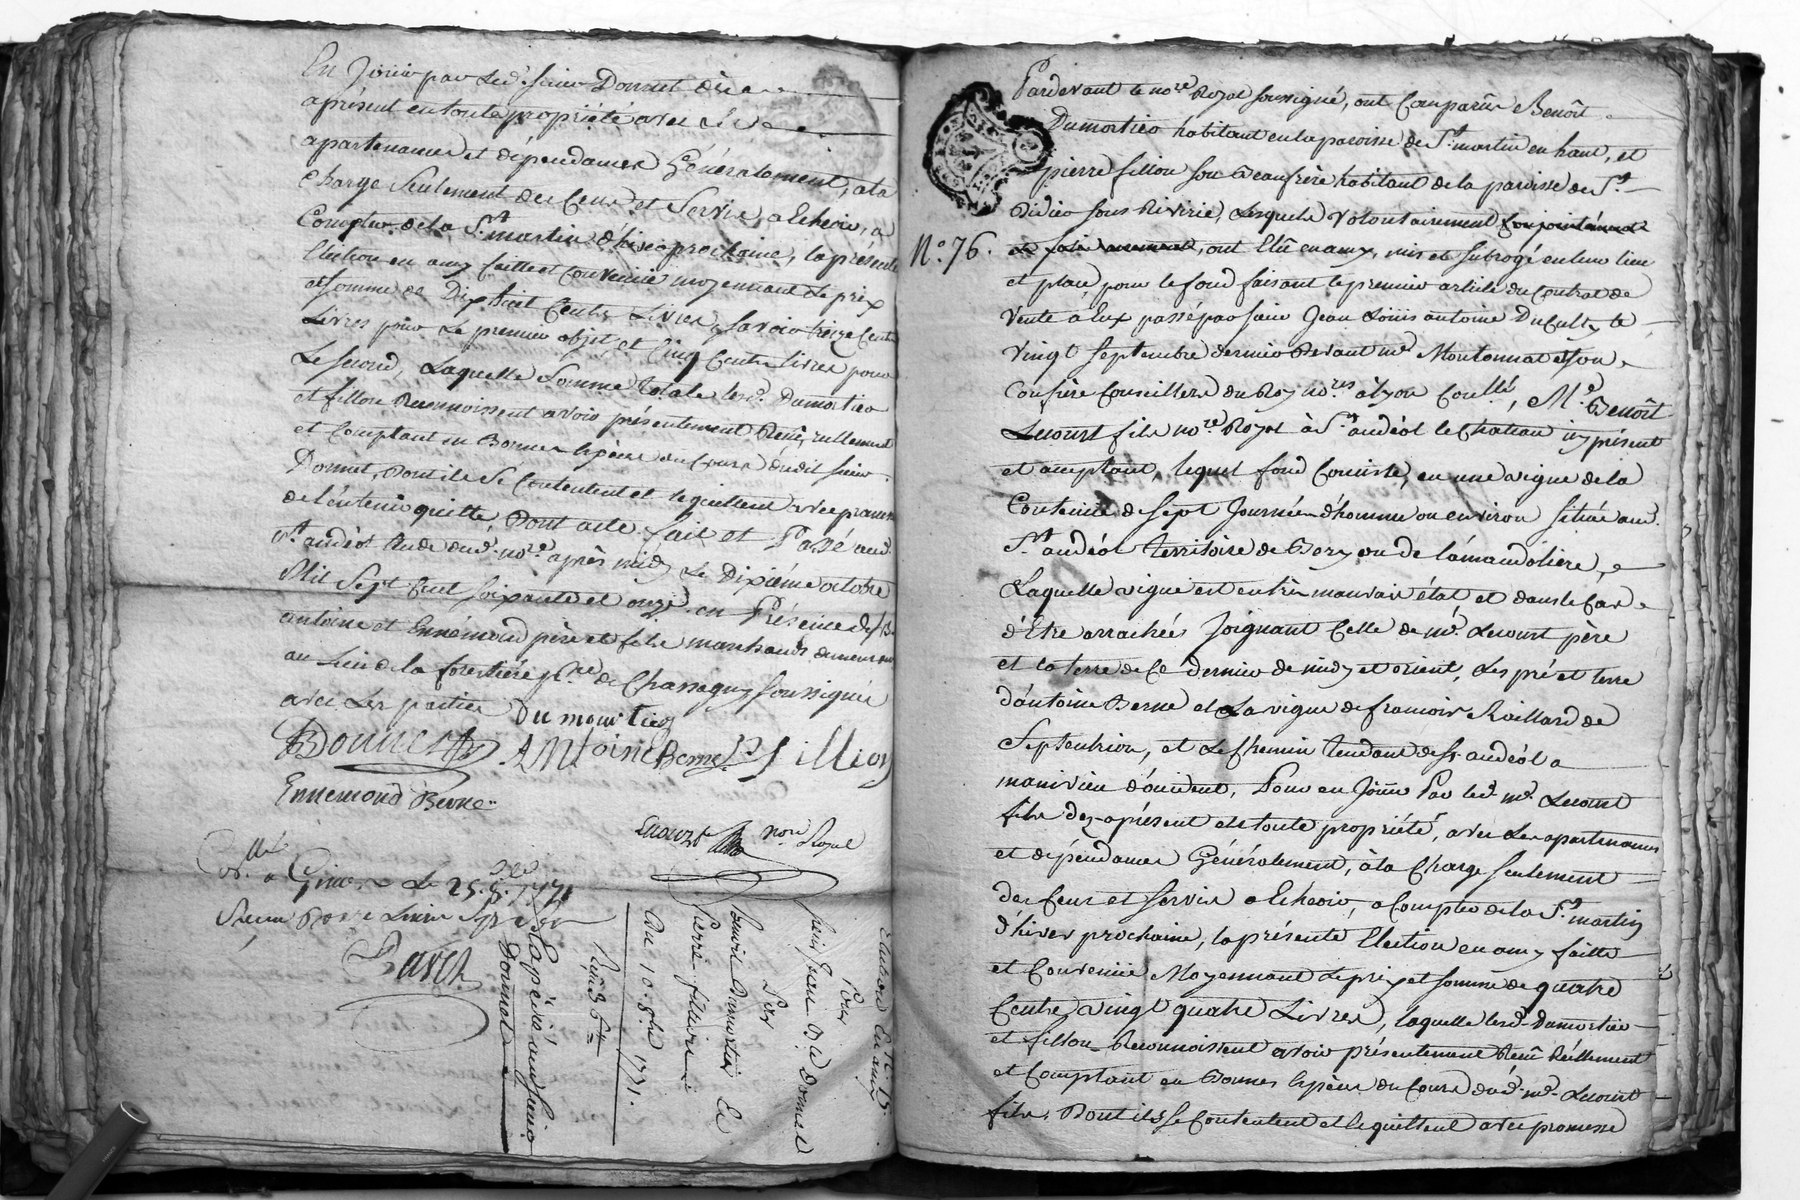 En Jouir par Led. sieur Donnet dès a
aprésent en toute propriété avec ses
apartenances et dépendances Généralement, ala
charge seulement des Cens et Servis, a Echeoir, a
Compter de la St. martin d'hiver prochaine, la présente
Election en amy faitte et convenüe moyennant Le prix
et somme de Dix huit Cents Livres, savoir treize Cents
Livres pour Le premier objet, et Cinq Cents Livres pour
Le second, Laquelle Somme totale lesd. Dumortier
et fillon Reconnoissent avoir présentement Reçu réellement
et Comptant en Bonnes Espèces du Cours dudit sieur
Donnet, Dont ils se Contentent et le quittent avec promesse
de l'en tenir quitte, Dont acte fait et Passé aud.
St. andéol Etude dud. nore. après midy Le Dixième octobre
Mil Sept Cent soixante et onze en Présence de Srs.
antoine et Ennémond père et fils marchands demeurant
au lieu de la forestière psse. de Chassagny soussignés
avec Les parties Du mourtiez
Donnet ANtoine Berne P. fillion
Ennemond Berne
Lecourt nore Royal
Collé. a Givors Le 25. 8bre 1771
Reçu
Baret
Election En amy
Pour
sieur Jean Donnet
Par
Benoit Dumortier Et
Pierre fillion
Du 10. 8bre 1771.
Expédié au sieur
Donnet
Pardevant le nore. Royal soussigné, ont Comparûs Benoît
Dumortier habitant en la paroisse de St. martin en haut, et
pierre fillon son Beaufrère habitant de la paroisse de St.
Didier sous Riverie, Lesquels volontairement conjointement
N°. 76.
, ont Elû en amy, mis et subrogé en leur lieu
et place pour le fond faisant le premier article du Contrat de
Vente à Eux passé par sieur Jean Loüis antoine Ducult, le
vingt septembre dernier devant me. Montonnat et son
Confrère Conseillers du Roy nores. à Lyon Collé, Me. Benoît
Lecourt fils nore. Royal à St. andéol le Chateau icy présent
et acceptant, lequel fond Consiste, en une vigne de la
Contenüe de sept Journées d'homme ou environ située aud.
St. andéol territoire de Bory ou de Lamandolière,
Laquelle vigne est en très mauvais état et dans le Cas
d'Etre arrachée Joignant Celle de me. Lecourt père
et la terre de Ce Dernier de midy et orient, Les pré et terre
d'antoine Berne et La vigne de francois Raillard de
Septentrion, et Le Chemin tendant de St. andéol a
manivieu d'occident, Pour en Joüir Par led. me. Lecourt
fils dez aprésent et toute propriété, avec Les apartenances
et dépendances Généralement, à la Charge seulement
des Cens et servis a Echeoir, a Compter de la St. martin
d'hiver prochaine, la présente Election en amy faitte
et Convenüe Moyennant Le prix et somme de quatre
Cents vingt quatre Livres, laquelle lesd. Dumortier
et fillon Reconnoissent avoir présentement Reçu Réellement
et Comptant en Bonnes Espèces du Cours dud. me. Lecourt
fils. Dont ils se Contentent et le quittent avec promesse